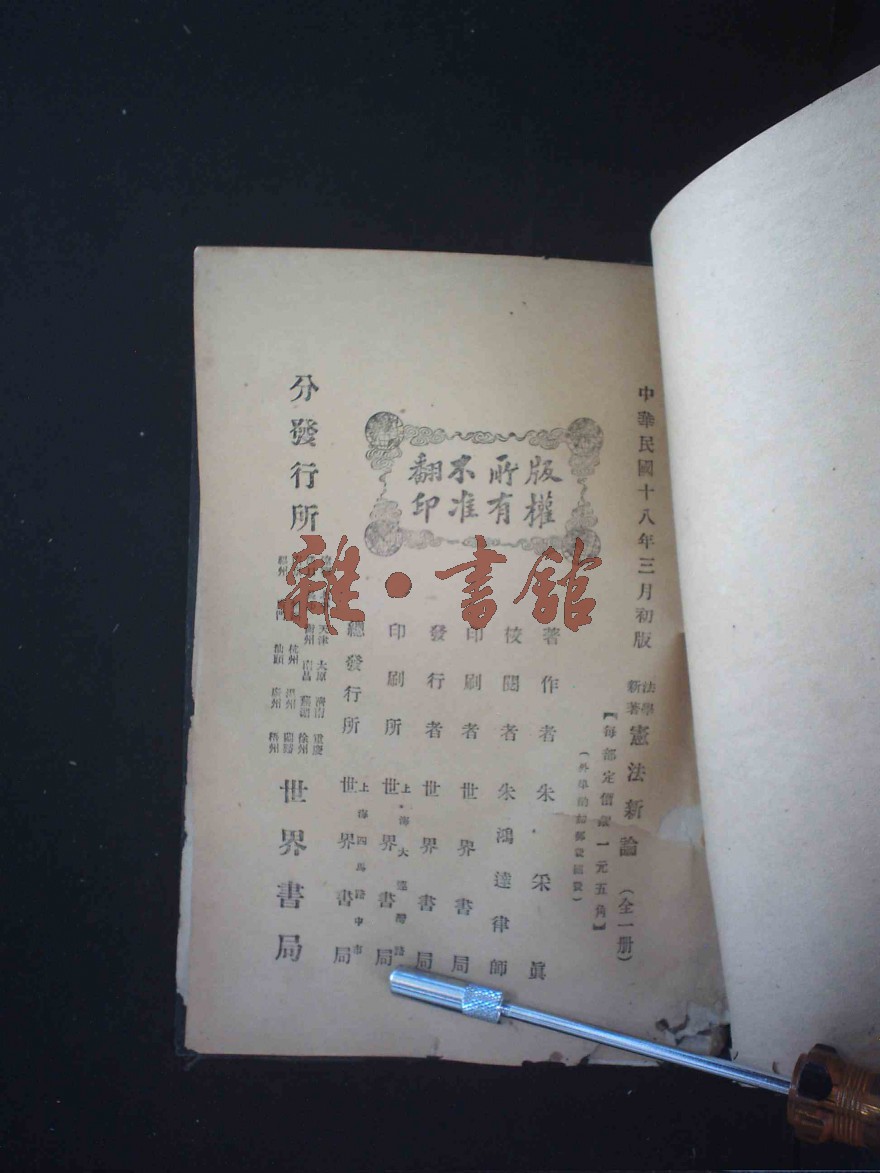 中華民國十八年三月初版
法學
新著
憲法新論（全一册）
【每部定價銀一元五角】
（外埠酌加郵費匯費）
版權
所有
不准
翻印
著作者 朱采眞
校閱者 朱鴻達律師
印刷者 世界書局
發行者 世界書局
印刷所 上海大連灣路 世界書局
總發行所 上海四馬路中市 世界書局
分發行所
天津 太原 濟南 重慶
南昌 蕪湖 徐州
杭州 溫州
汕頭 廣州 梧州
世界書局
雜·書館